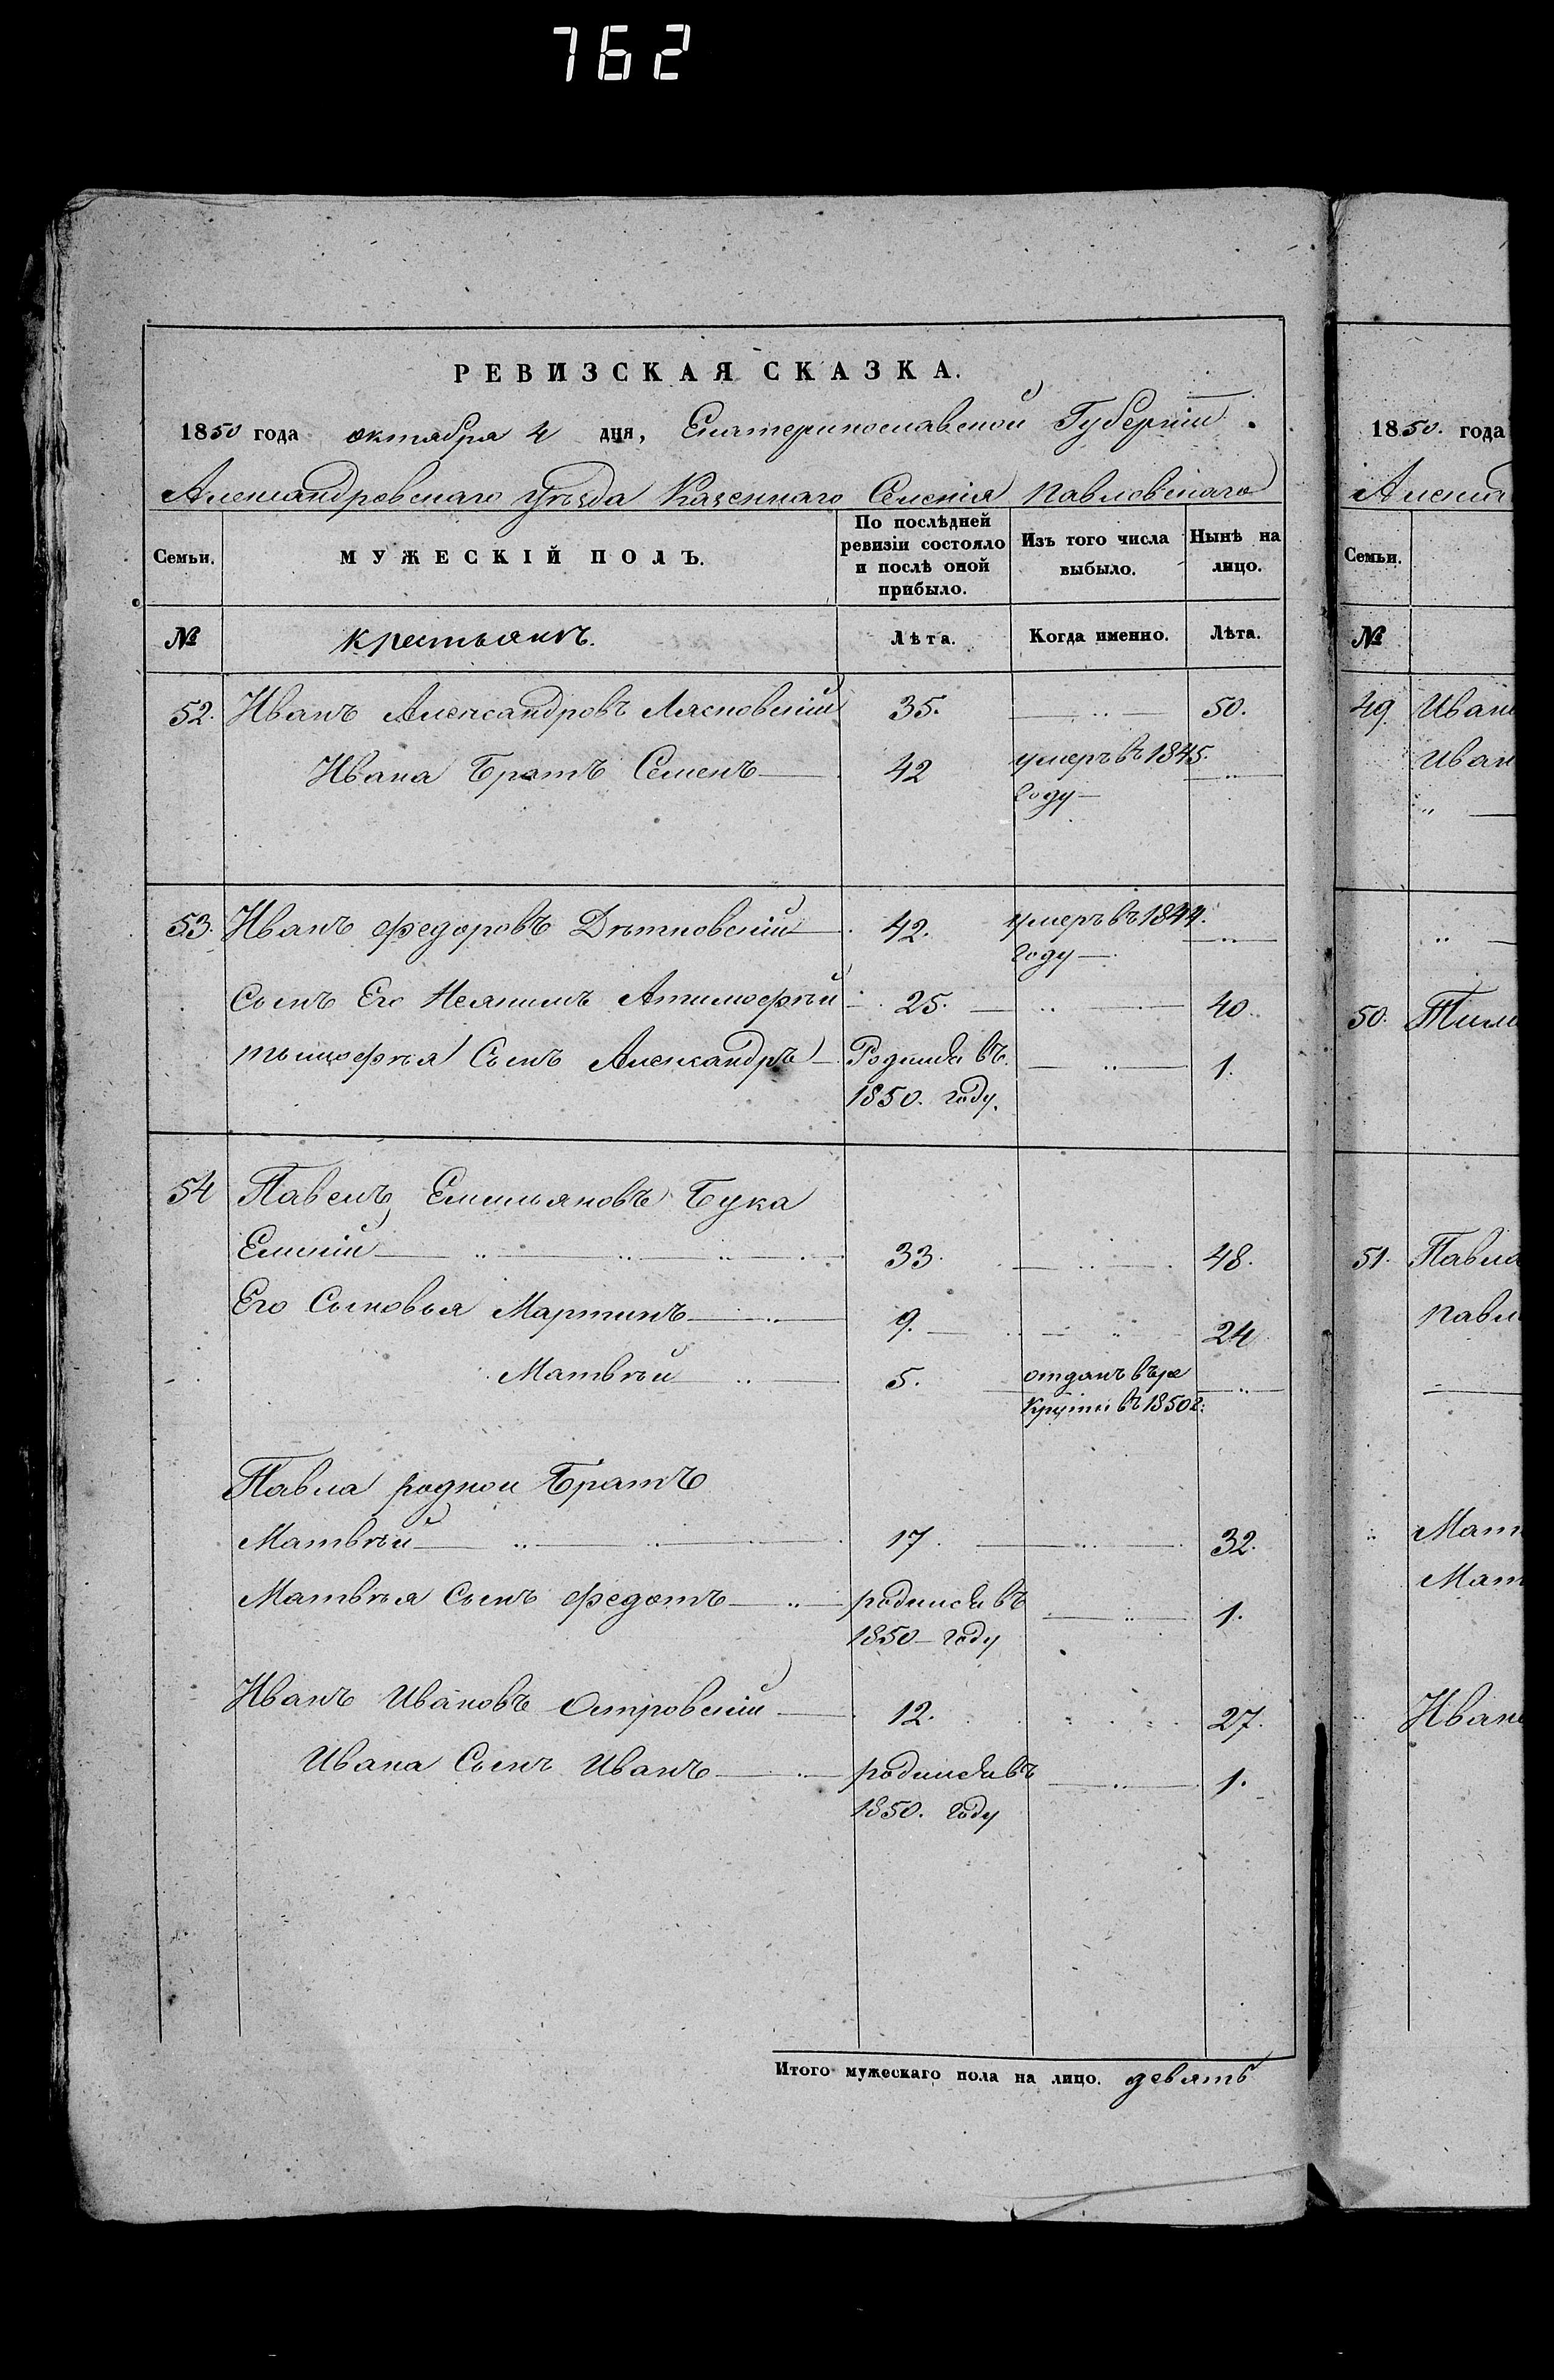 762
РЕВИЗСКАЯ СКАЗКА.
1850 года октября 4 дня, Екатеринославской Губерніи.
Александровскаго Уѣзда Казеннаго Селенія Павловскаго
Семьи. МУЖЕСКІЙ ПОЛЪ. По послѣдней ревизіи состояло и послѣ оной прибыло. Изъ того числа выбыло. Нынѣ на лицо.
№ крестьянъ. Лѣта. Когда именно. Лѣта.
52. Иванъ Александровъ Лясковскій 35. 50.
Ивана Братъ Семенъ 42 умеръ въ 1845.
году
53. Иванъ Федоровъ 42. умеръ въ 1844.
году
Сынъ Его 25. 40.
Сынъ Александръ Родился въ 1.
1850. году.
54 Павелъ Емельяновъ Бука
33. 48.
Его Сыновья Мартинъ 9. 24
Матвѣй 5. отданъ въ ре
круты въ 1850 г:
Павла родной Братъ
Матвѣй 17. 32.
Матвѣя Сынъ Федотъ родился въ 1.
1850 году
Иванъ Ивановъ Островскій 12. 27.
Ивана Сынъ Иванъ родился въ 1.
1850. году
Итого мужескаго пола на лицо. девять
1850. года
Семьи.
№
49 Иван
Иван
50.
51. Павла
Павл
Мат
Мат
Иван